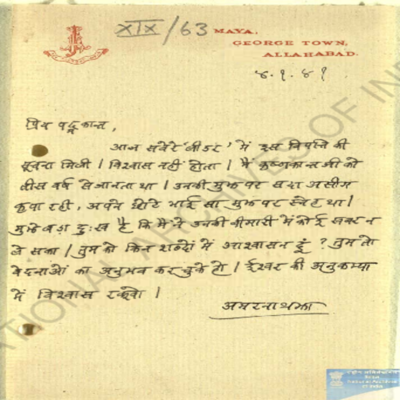 XIX/63
MAYA,
GEORGE TOWN,
ALLAHABAD.
४.९.४९
प्रिय पद्मकान्त,
आज सवेरे 'लीडर' में इस विपत्ति की
सूचना मिली। विश्वास नहीं होता। मैं कृष्णकान्त जी को
बीस वर्ष से जानता था। उनकी मुझ पर सदा असीम
कृपा रही, अपने छोटे भाई सा मुझ पर स्नेह था।
मुझे बड़ा दुःख है कि मैं ने उनकी बीमारी में कोई खबर न
ले सका। तुम को किन शब्दों में आश्वासन दूं? तुम तो
वेदनाओं का अनुभव कर चुके हो। ईश्वर की अनुकम्पा
में विश्वास रक्खो।
अमरनाथ झा
NATIONAL ARCHIVES OF INDIA